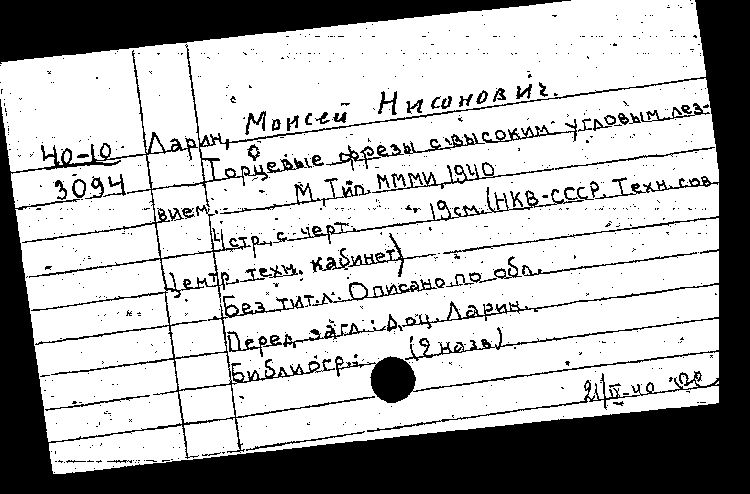 40-10
3094
Ларин, Моисей Нисонович.
Торцевые фрезы с высоким угловым лез-
вием. М., Тип. МММИ, 1940
4 стр. с черт. 19 см. (НКВ-СССР. Техн. сов
Центр. техн. кабинет)
Без тит. л. Описано по обл.
Перед загл.: доц. Ларин.
Библиогр.: (9 назв)
21/IV-40